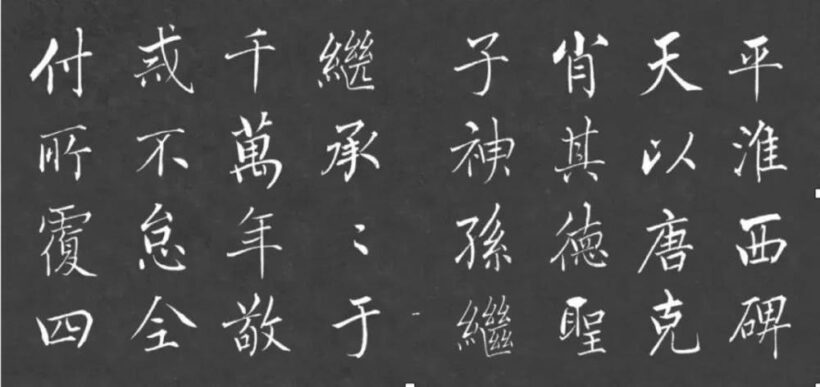 平淮西碑
天以唐克
肖其德聖
子神孫繼
繼承〻于
千萬年敬
惑不怠全
付所覆四